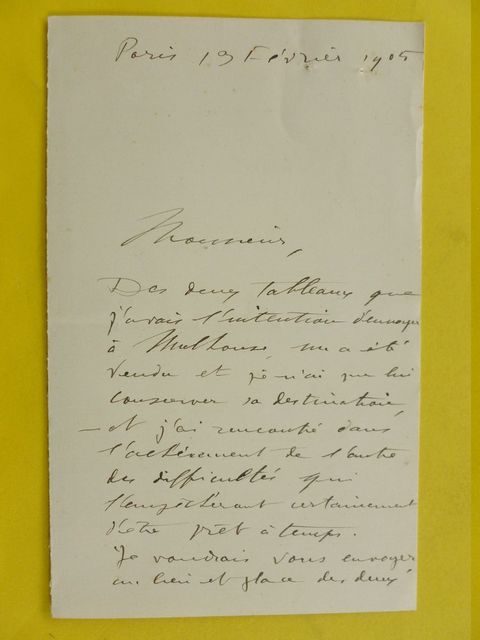 Paris 19 Février 1905
Monsieur,
Des deux tableaux que
j'avais l'intention d'envoyer
à Mulhouse, un a été
vendu et je n'ai pu lui
conserver sa destination,
— et j'ai rencontré dans
l'achèvement de l'autre
des difficultés qui
l'empêcheront certainement
d'être prêt à temps.
Je voudrais vous envoyer
au lieu et place des deux